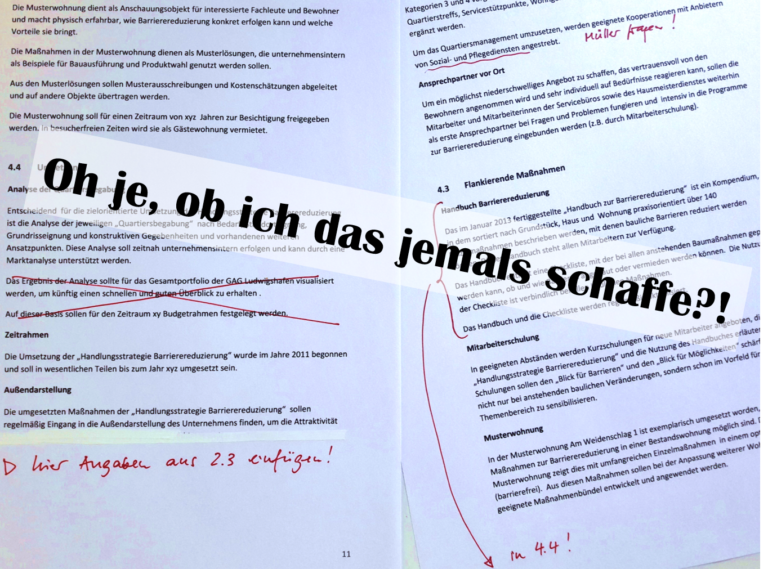 Die Musterwohnung dient als Anschauungsobjekt für interessierte Fachleute und Bewohner
und macht physisch erfahrbar, wie Barrierereduzierung konkret erfolgen kann und welche
Vorteile sie bringt.
Die Maßnahmen in der Musterwohnung dienen als Musterlösungen, die unternehmensintern
als Beispiele für Bauausführung und Produktwahl genutzt werden sollen.
Aus den Musterlösungen sollen Musterausschreibungen und Kostenschätzungen abgeleitet
und auf andere Objekte übertragen werden.
Die Musterwohnung soll für einen Zeitraum von xyz Jahren zur Besichtigung freigegeben
werden. In besucherfreien Zeiten wird sie als Gästewohnung vermietet.
4.4
Analyse der
Entscheidend für die zielorientierte Umsetzung
ist die Analyse der jeweiligen „Quartiersbegabung“ nach
Grundrisseignung und konstruktiven Gegebenheiten und vorhandenen
Ansatzpunkten. Diese Analyse soll zeitnah unternehmensintern erfolgen und kann durch eine
Marktanalyse unterstützt werden.
Das Ergebnis der Analyse sollte für das Gesamtportfolio der GAG Ludwigshafen visualisiert
werden, um künftig einen schnellen und guten Überblick zu erhalten .
Auf dieser Basis sollen für den Zeitraum xy Budgetrahmen festgelegt werden.
Zeitrahmen
Die Umsetzung der „Handlungsstrategie Barrierereduzierung“ wurde im Jahre 2011 begonnen
und soll in wesentlichen Teilen bis zum Jahr xyz umgesetzt sein.
Außendarstellung
Die umgesetzten Maßnahmen der „Handlungsstrategie Barrierereduzierung“ sollen
regelmäßig Eingang in die Außendarstellung des Unternehmens finden, um die Attraktivität
hier Angaben aus 2.3 einfügen!
11
Oh je, ob ich das jemals schaffe?!
Kategorien 3 und 4
Quartierstreffs, Servicestützpunkte,
ergänzt werden.
Um das Quartiersmanagement umzusetzen, werden geeignete Kooperationen mit Anbietern
von Sozial- und Pflegediensten angestrebt.
Müller fragen!
Ansprechpartner vor Ort
Um ein möglichst niederschwelliges Angebot zu schaffen, das vertrauensvoll von den
Bewohnern angenommen wird und sehr individuell auf Bedürfnisse reagieren kann, sollen die
Mitarbeiter und Mitarbeiterinnen der Servicebüros sowie des Hausmeisterdienstes weiterhin
als erste Ansprechpartner bei Fragen und Problemen fungieren und intensiv in die Programme
zur Barrierereduzierung eingebunden werden (z.B. durch Mitarbeiterschulung).
4.3 Flankierende Maßnahmen
Handbuch Barrierereduzierung
Das im Januar 2013 fertiggestellte „Handbuch zur Barrierereduzierung“ ist ein Kompendium,
in dem sortiert nach Grundstück, Haus und Wohnung praxisorientiert über 140
beschrieben werden, mit denen bauliche Barrieren reduziert werden
Handbuch steht allen Mitarbeitern zur Verfügung.
Das Handbuch
eine Checkliste, mit der bei allen anstehenden Baumaßnahmen
werden kann, ob und wie
oder vermieden werden können. Die
der Checkliste ist verbindlich
Das Handbuch und die Checkliste werden
Mitarbeiterschulung
In geeigneten Abständen werden Kurzschulungen für neue Mitarbeiter angeboten,
„Handlungsstrategie Barrierereduzierung“ und die Nutzung des Handbuches
Schulungen sollen den „Blick für Barrieren“ und den „Blick für Möglichkeiten“
nicht nur bei anstehenden baulichen Veränderungen, sondern schon im Vorfeld für
Themenbereich zu sensibilisieren.
Musterwohnung
In der Musterwohnung Am Weidenschlag 1 ist exemplarisch umgesetzt worden,
Maßnahmen zur Barrierereduzierung in einer Bestandswohnung möglich sind.
Musterwohnung zeigt dies mit umfangreichen Einzelmaßnahmen in einem
(barrierefrei). Aus diesen Maßnahmen sollen bei der Anpassung weiterer
geeignete Maßnahmenbündel entwickelt und angewendet werden.
in 4.4!